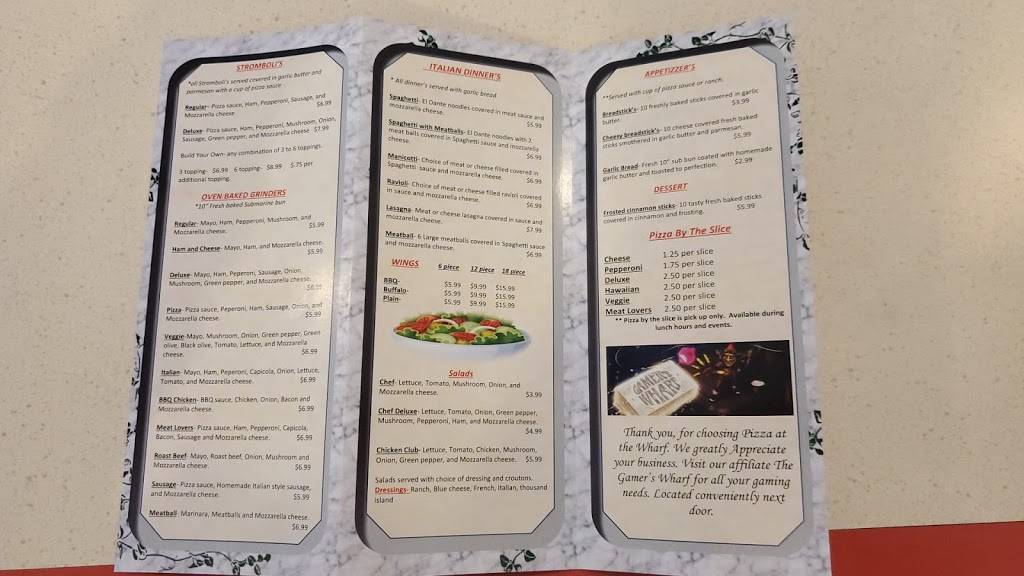 STROMBOLI'S
*all Stromboli's served covered in garlic butter and
parmesan with a cup of pizza sauce
Regular- Pizza sauce, Ham, Pepperoni, Sausage, and
Mozzarella cheese $6.99
Deluxe- Pizza sauce, Ham, Pepperoni, Mushroom, Onion,
Sausage, Green pepper, and Mozzarella cheese $7.99
Build Your Own- any combination of 3 to 6 toppings.
3 topping- $6.99 6 topping- $8.99 $.75 per
additional topping.
OVEN BAKED GRINDERS
*10" Fresh baked Submarine bun
Regular- Mayo, Ham, Pepperoni, Mushroom, and
Mozzarella cheese. $5.99
Ham and Cheese- Mayo, Ham, and Mozzarella cheese.
$5.99
Deluxe- Mayo, Ham, Peperoni, Sausage, Onion,
Mushroom, Green pepper, and Mozzarella cheese.
$6.99
Pizza- Pizza sauce, Peperoni, Ham, Sausage, Onion, and
Mozzarella cheese. $5.99
Veggie-Mayo, Mushroom, Onion, Green pepper, Green
olive, Black olive, Tomato, Lettuce, and Mozzarella
cheese. $6.99
Italian- Mayo, Ham, Peperoni, Capicola, Onion, Lettuce,
Tomato, and Mozzarella cheese. $6.99
BBQ Chicken- BBQ sauce, Chicken, Onion, Bacon and
Mozzarella cheese. $6.99
Meat Lovers- Pizza sauce, Ham, Pepperoni, Capicola,
Bacon, Sausage and Mozzarella cheese. $6.99
Roast Beef- Mayo, Roast beef, Onion, Mushroom and
Mozzarella cheese. $6.99
Sausage- Pizza sauce, Homemade Italian style sausage,
and Mozzarella cheese. $5.99
Meatball- Marinara, Meatballs and Mozzarella cheese.
$6.99
ITALIAN DINNER'S
* All dinner's served with garlic bread
Spaghetti- El Dante noodles covered in meat sauce and
mozzarella cheese. $5.99
Spaghetti with Meatballs- El Dante noodles with 3
meat balls covered in Spaghetti sauce and mozzarella
cheese. $6.99
Manicotti- Choice of meat or cheese filled covered in
Spaghetti sauce and mozzarella cheese. $6.99
Ravioli- Choice of meat or cheese filled ravioli covered
in sauce and mozzarella cheese. $6.99
Lasagna- Meat or cheese lasagna covered in sauce and
mozzarella cheese. $7.99
Meatball- 6 Large meatballs covered in Spaghetti sauce
and mozzarella cheese. $6.99
WINGS 6 piece 12 piece 18 piece
BBQ- $5.99 $9.99 $15.99
Buffalo- $5.99 $9.99 $15.99
Plain- $5.99 $9.99 $15.99
Salads
Chef- Lettuce, Tomato, Mushroom, Onion, and
Mozzarella cheese. $3.99
Chef Deluxe- Lettuce, Tomato, Onion, Green pepper,
Mushroom, Pepperoni, Ham, and Mozzarella cheese.
$4.99
Chicken Club- Lettuce, Tomato, Chicken, Mushroom,
Onion, Green pepper, and Mozzarella cheese. $5.99
Salads served with choice of dressing and croutons.
Dressings- Ranch, Blue cheese, French, Italian, thousand
island
APPETIZZER'S
**Served with cup of pizza sauce or ranch.
Breadstick's- 10 freshly baked sticks covered in garlic
butter. $3.99
Cheesy breadstick's- 10 cheese covered fresh baked
sticks smothered in garlic butter and parmesan.
$5.99
Garlic Bread- Fresh 10" sub bun coated with homemade
garlic butter and toasted to perfection. $2.99
DESSERT
Frosted cinnamon sticks- 10 tasty fresh baked sticks
covered in cinnamon and frosting. $5.99
Pizza By The Slice
Cheese 1.25 per slice
Pepperoni 1.75 per slice
Deluxe 2.50 per slice
Hawaiian 2.50 per slice
Veggie 2.50 per slice
Meat Lovers 2.50 per slice
** Pizza by the slice is pick up only. Available during
lunch hours and events.
GAMER'S
WHARF
Thank you, for choosing Pizza at
the Wharf. We greatly Appreciate
your business. Visit our affiliate The
Gamer's Wharf for all your gaming
needs. Located conveniently next
door.